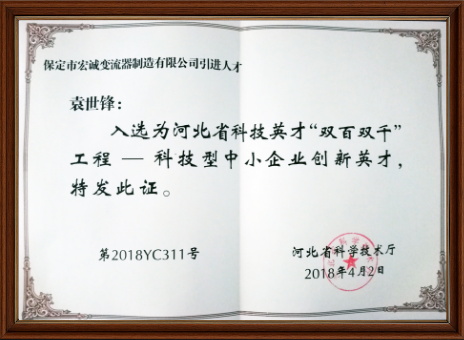 保定市宏诚变流器制造有限公司引进人才
袁世锋：
入选为河北省科技英才“双百双千”
工程 — 科技型中小企业创新英才，
特发此证。
第2018YC311号
河北省科学技术厅
2018年4月2日